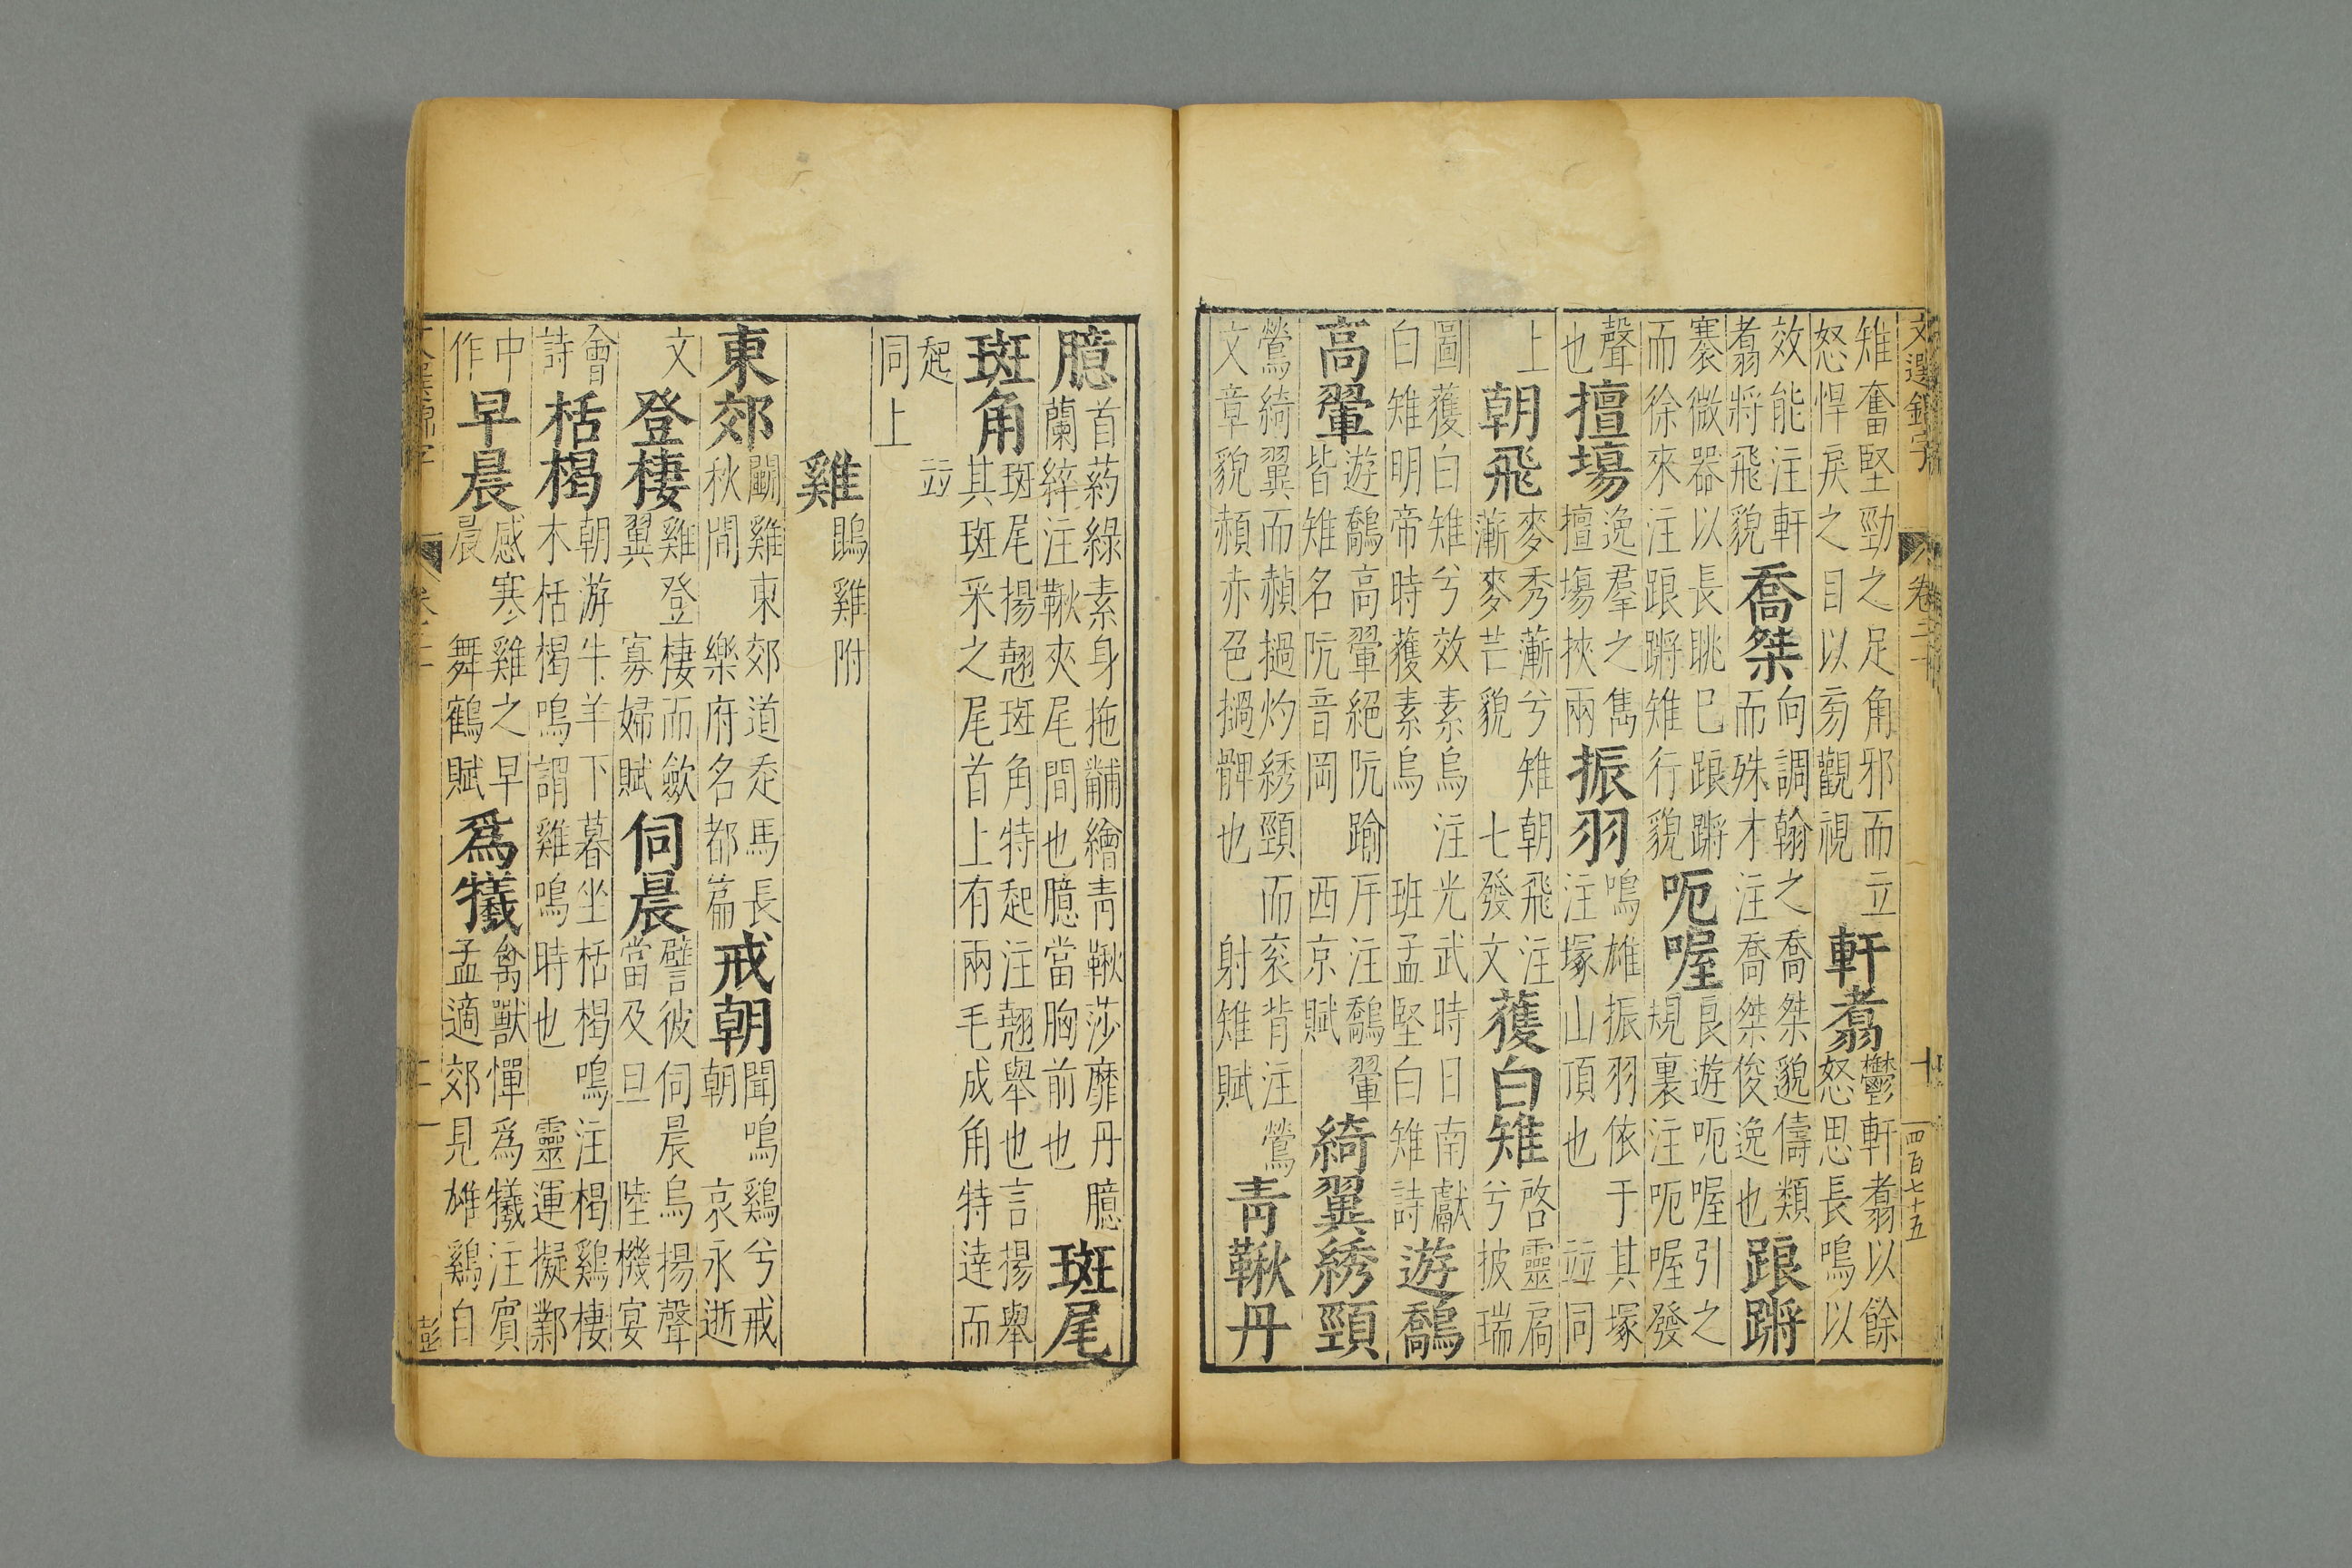 文選錦字 卷二十 十 四百七十五
雉奮堅勁之足角邪而立怒悍戾之目以旁觀視 軒翥 鬱軒翥以餘怒思長鳴以
效能注軒翥將飛貌 喬桀 向調翰之喬桀貌儔類而殊才注喬桀俊逸也 踉蹡
褰微罟以長眺已踉蹡而徐來注踉蹡雉行貌 呃喔 良遊呃喔引之規裏注呃喔發
聲也 擅場 逸羣之雋擅場挾兩 振羽 鳴雄振羽依于其塚注塚山頂也 並同
上 朝飛 麥秀蔪兮雉朝飛注漸麥芒貌 七發文 獲白雉 啓靈扃兮披瑞
圖獲白雉兮效素烏注光武時日南獻白雉明帝時獲素烏 班孟堅白雉詩 遊鷮
高翬 遊鷮高翬絕阬踰斥注鷮翬皆雉名阬音岡 西京賦 綺翼綉頸
鶯綺翼而赬撾灼綉頸而衮背注鶯文章貌赬赤色撾髀也 射雉賦 青鞦丹
臆 首葯綠素身拖黼繪青鞦莎靡丹臆蘭綷注鞦夾尾間也臆當胸前也 斑尾
斑角 斑尾揚翹斑角特起注翹舉也言揚舉其斑采之尾首上有兩毛成角特達而
起 並同上
雞 鵾雞附
東郊 鬬雞東郊道走馬長秋間 樂府名都篇 戒朝 聞鳴鷄兮戒朝 哀永逝
文 登棲 雞登棲而歛翼 寡婦賦 伺晨 譬彼伺晨烏揚聲當及旦 陸機宴
會詩 栝楬 朝游牛羊下暮坐栝楬鳴注楬鷄棲木栝楬鳴謂雞鳴時也 靈運擬鄴
中作 早晨 感寒雞之早晨 舞鶴賦 爲犧 禽獸憚爲犧注賓孟適郊見雄鷄自
彭